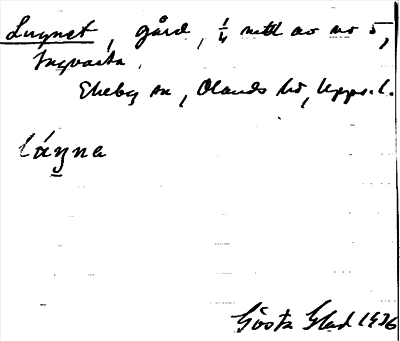 Lugnet, gård, 1/4 mtl av nr 5,
Ingvasta.
Ekeby sn, Olands hd, Upps. l.
lúgna
Gösta Glad 1936